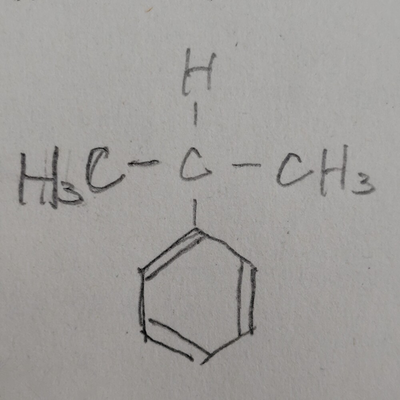 H
H₃C - C - CH₃